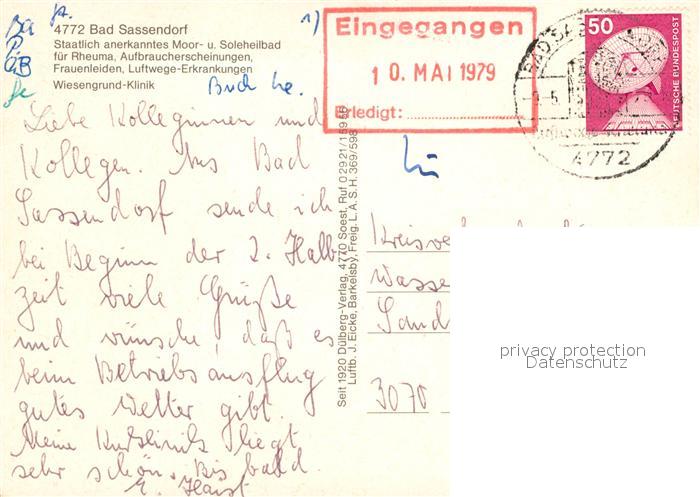 4772 Bad Sassendorf
Staatlich anerkanntes Moor- u. Soleheilbad
für Rheuma, Aufbraucherscheinungen,
Frauenleiden, Luftwege-Erkrankungen
Wiesengrund-Klinik
1)
Eingegangen
10. MAI 1979
Erledigt:
50
DEUTSCHE BUNDESPOST
4772
Liebe Kolleginnen und
Kollegen. Aus Bad
Sassendorf sende ich
bei Beginn der 2. Halb
zeit viele Grüße
und wünsche, daß es
beim Betriebsausflug
gutes Wetter gibt.
Meine Kurklinik liegt
sehr schön. Bis bald.
Seit 1920 Dülberg-Verlag, 4770 Soest, Ruf 02921/15956
Luftb. J. Eicke, Barkelsby, Freig. L.A.S.H. 369/598
Wasse
Sand
3070
privacy protection
Datenschutz